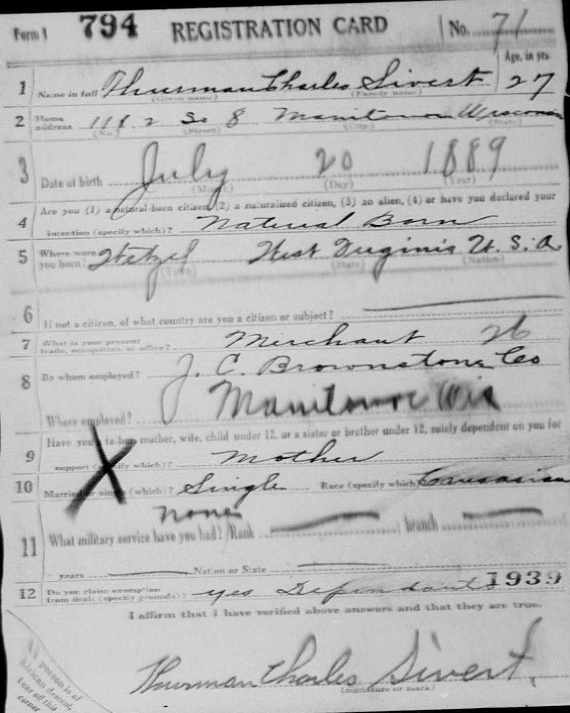 Form 1 794 REGISTRATION CARD No. 71
Age, in yrs
1 Name in full Thurman Charles Sivert 27
(Given name) (Family name)
2 Home address 1182 So 8 Manitowoc Wisconsin
(No.) (Street) (City) (State)
3 Date of birth July 20 1889
(Month) (Day) (Year)
Are you (1) a natural-born citizen, (2) a naturalized citizen, (3) an alien, (4) or have you declared your
4 intention (specify which)? Natural Born
5 Where were you born? Wetzel West Virginia U.S.A
(Town) (State) (Nation)
6 If not a citizen, of what country are you a citizen or subject?
7 What is your present trade, occupation, or office? Merchant 26
8 By whom employed? J. C. Brownstone Co
Where employed? Manitowoc Wis
Have you a father, mother, wife, child under 12, or a sister or brother under 12, solely dependent on you for
9 support (specify which)? Mother
10 Married or single (which)? Single Race (specify which)? Caucasian
none
11 What military service have you had? Rank branch
years Nation or State
12 Do you claim exemption from draft (specify grounds)? yes Dependants 1939
I affirm that I have verified above answers and that they are true.
Thurman Charles Sivert.
(Signature or mark)
If person is of
African descent,
tear off this
corner